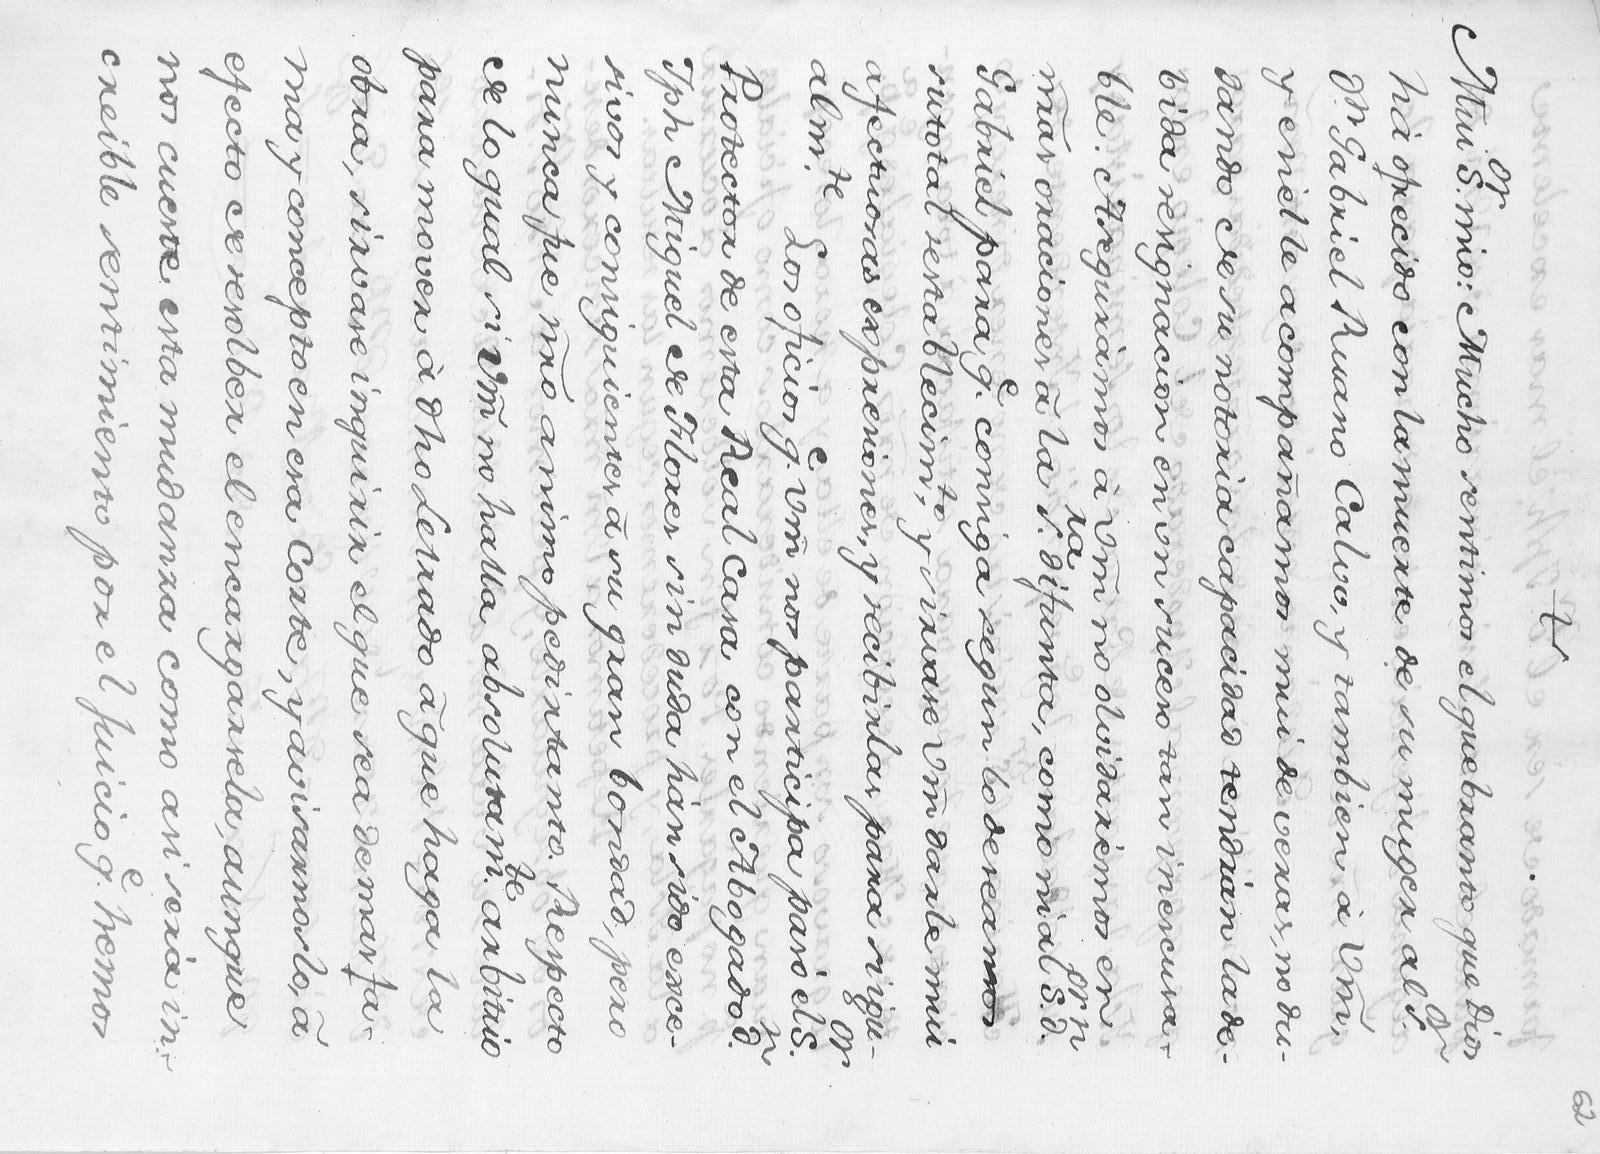 62
+
Mui S.or mio: Mucho sentimos el quebranto que Dios
há ofrecido con la muerte de su muger al S.or
D.n Gabriel Ruano Calvo, y tambien à Vm̃,
y en el le acompañamos mui de veras, no du-
dando de su notoria capacidad tendrán la de-
bida resignacion en un suceso tan inescusa-
ble. Asegurámos à Vm̃ no olvidarémos en
nr̃as oraciones ã la S.ra difunta, como ni al S.or D.n
Gabriel para q.e consiga segun lo deseamos
su total restablecim.to y sirvase Vm̃ darle mui
afectuosas expresiones, y recibirlas para si igu-
alm.te
Los oficios q.e Vm̃ nos participa pasó el S.or
Protector de esta Real Casa con el Abogado D.n
Jph Miguel de Flores sin duda hán sido exce-
sivos y consiguientes ã su gran bondad, pero
nunca fue nr̃o animo pedir tanto. Respecto
de lo qual si Vm̃ no halla absolutam.te arbitrio
para mover à dho Letrado ã que haga la
obra, sirvase inquirir el que sea de mas fa-
ma y concepto en esa Corte, y avisarnoslo, ã
efecto de resolber el encargarsela, aunque
nos cueste esta mudanza como asi seria in-
creible sentimiento por el juicio q.e hemos